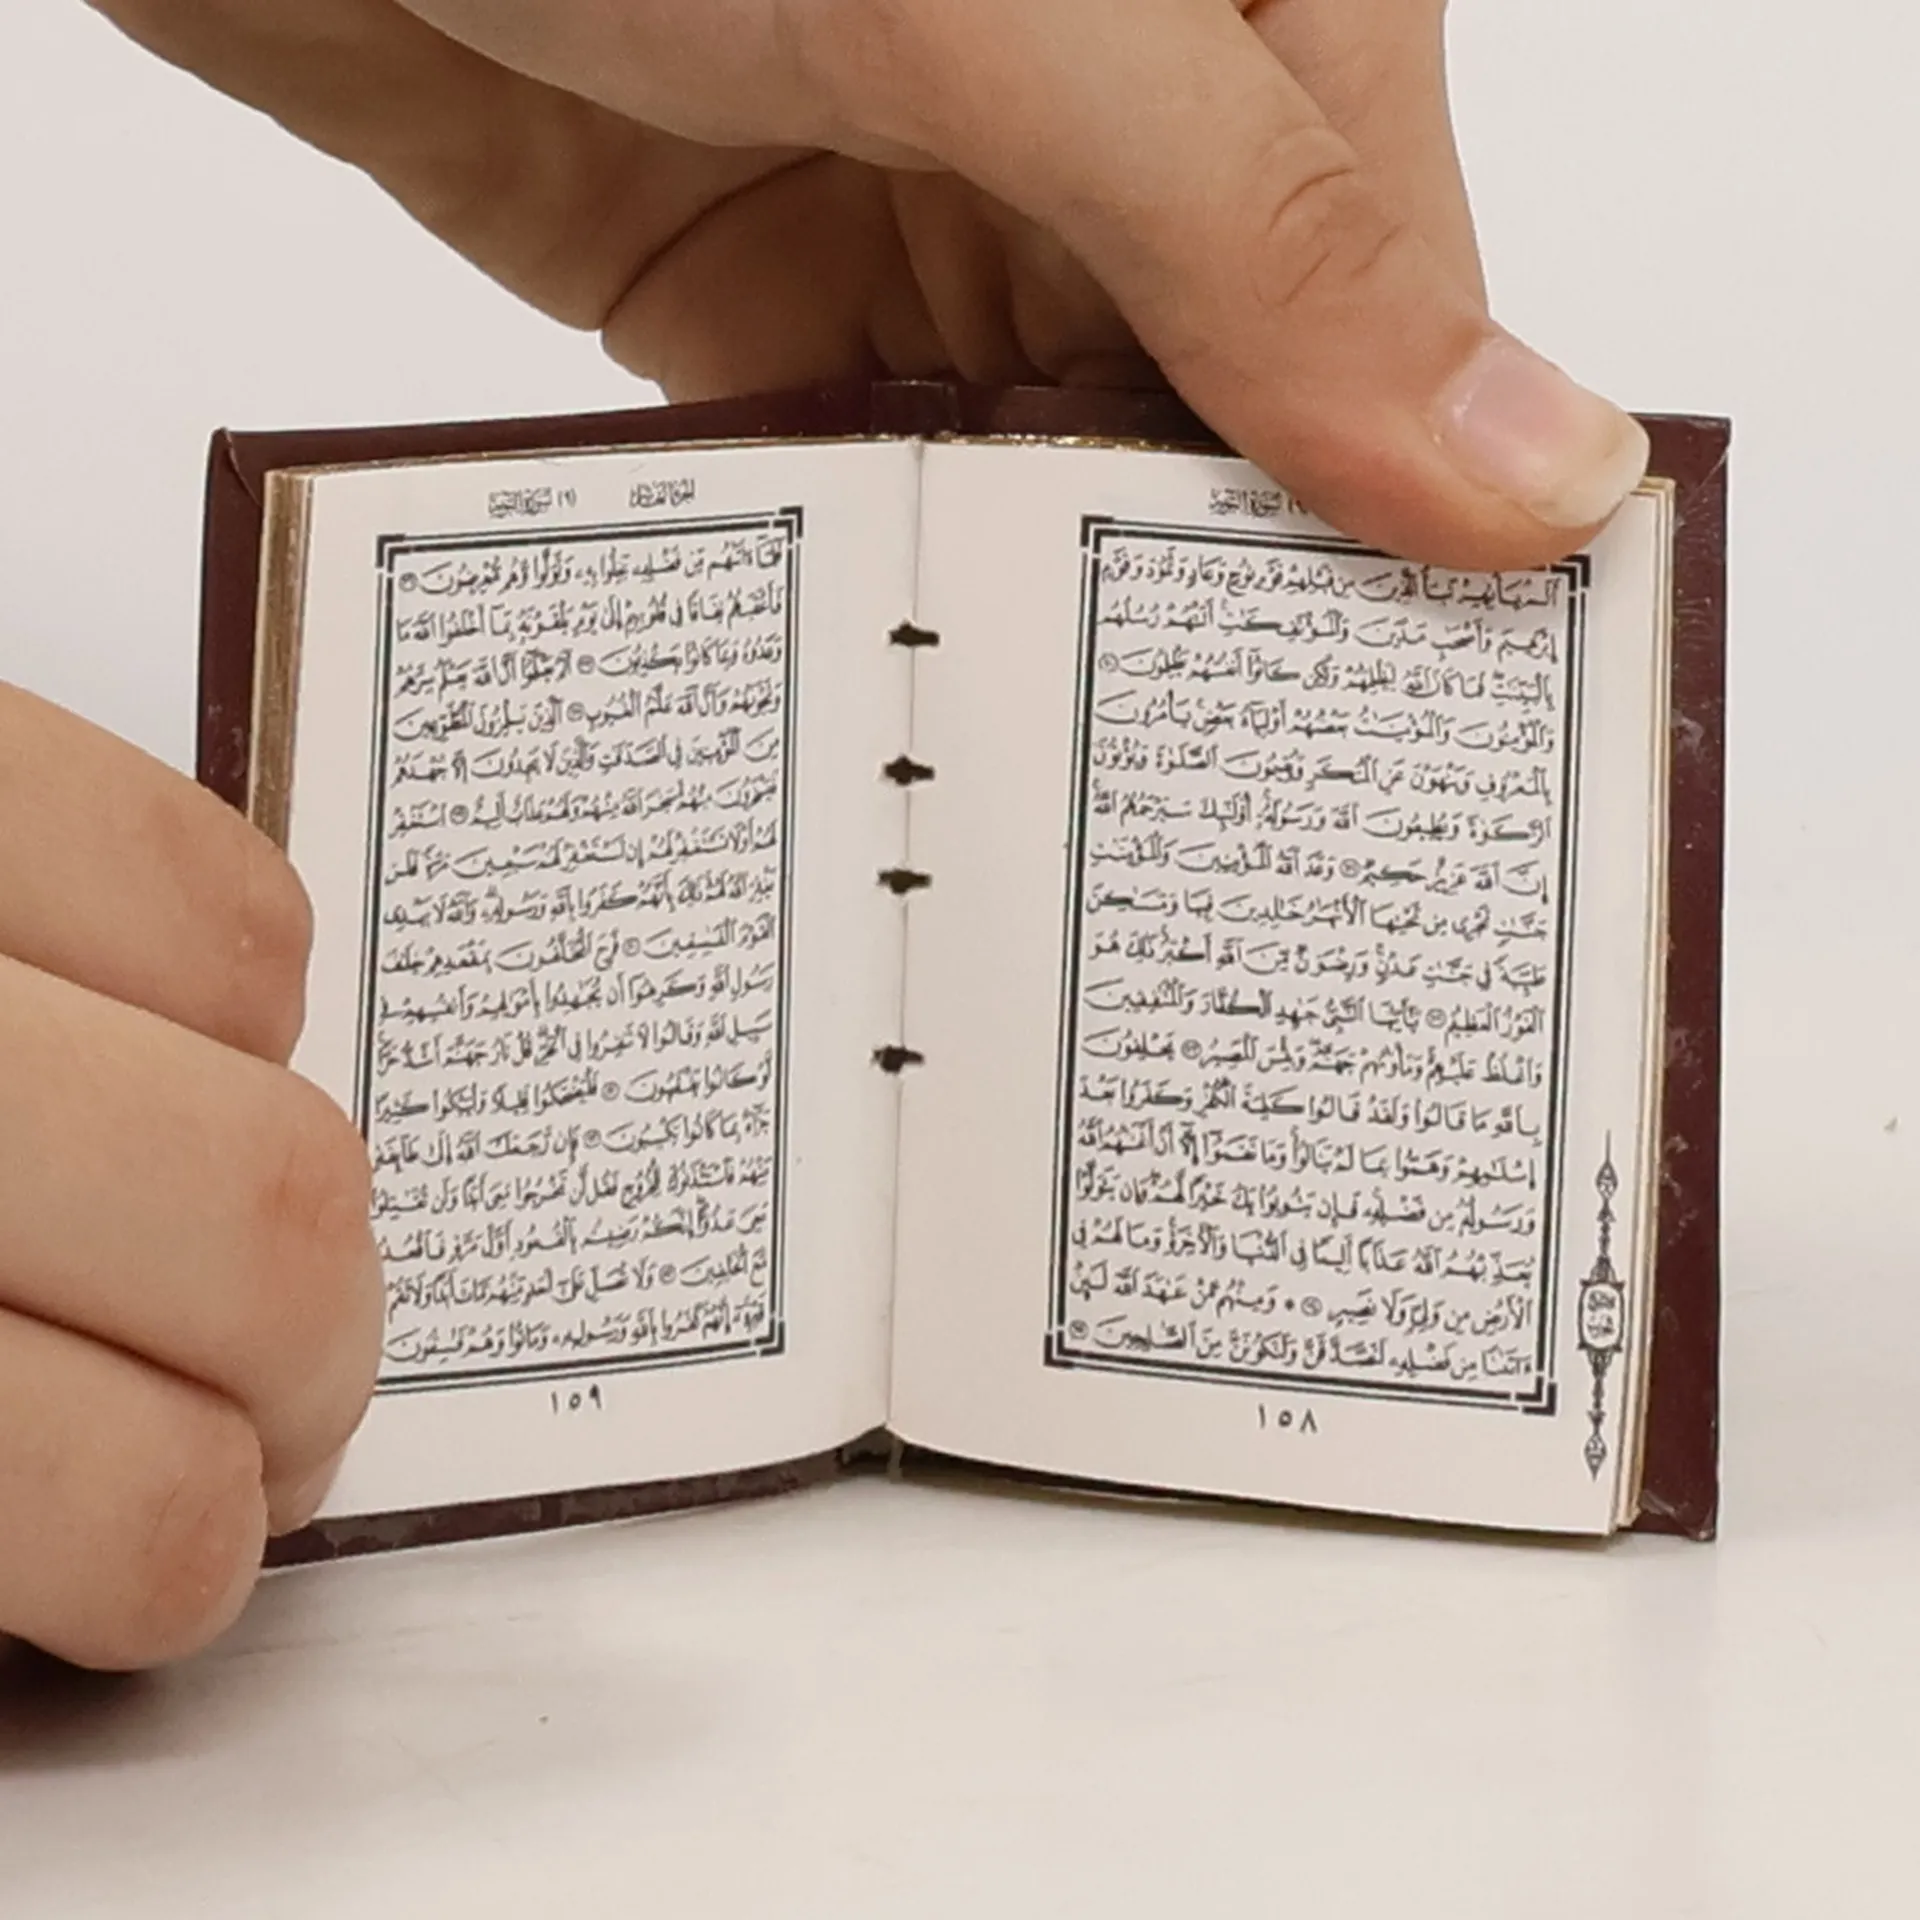 سورة التوبة
أَلَمْ يَأْتِهِمْ نَبَأُ ٱلَّذِينَ مِن قَبْلِهِمْ قَوْمِ نُوحٍ وَعَادٍ وَثَمُودَ وَقَوْمِ
إِبْرَٰهِيمَ وَأَصْحَٰبِ مَدْيَنَ وَٱلْمُؤْتَفِكَٰتِ أَتَتْهُمْ رُسُلُهُم
بِٱلْبَيِّنَٰتِ فَمَا كَانَ ٱللَّهُ لِيَظْلِمَهُمْ وَلَٰكِن كَانُوٓا۟ أَنفُسَهُمْ يَظْلِمُونَ ٧٠
وَٱلْمُؤْمِنُونَ وَٱلْمُؤْمِنَٰتُ بَعْضُهُمْ أَوْلِيَآءُ بَعْضٍ يَأْمُرُونَ
بِٱلْمَعْرُوفِ وَيَنْهَوْنَ عَنِ ٱلْمُنكَرِ وَيُقِيمُونَ ٱلصَّلَوٰةَ وَيُؤْتُونَ
ٱلزَّكَوٰةَ وَيُطِيعُونَ ٱللَّهَ وَرَسُولَهُۥٓ أُو۟لَٰٓئِكَ سَيَرْحَمُهُمُ ٱللَّهُ
إِنَّ ٱللَّهَ عَزِيزٌ حَكِيمٌ ٧١ وَعَدَ ٱللَّهُ ٱلْمُؤْمِنِينَ وَٱلْمُؤْمِنَٰتِ
جَنَّٰتٍ تَجْرِى مِن تَحْتِهَا ٱلْأَنْهَٰرُ خَٰلِدِينَ فِيهَا وَمَسَٰكِنَ
طَيِّبَةً فِى جَنَّٰتِ عَدْنٍ وَرِضْوَٰنٌ مِّنَ ٱللَّهِ أَكْبَرُ ذَٰلِكَ هُوَ
ٱلْفَوْزُ ٱلْعَظِيمُ ٧٢ يَٰٓأَيُّهَا ٱلنَّبِىُّ جَٰهِدِ ٱلْكُفَّارَ وَٱلْمُنَٰفِقِينَ
وَٱغْلُظْ عَلَيْهِمْ وَمَأْوَىٰهُمْ جَهَنَّمُ وَبِئْسَ ٱلْمَصِيرُ ٧٣ يَحْلِفُونَ
بِٱللَّهِ مَا قَالُوا۟ وَلَقَدْ قَالُوا۟ كَلِمَةَ ٱلْكُفْرِ وَكَفَرُوا۟ بَعْدَ
إِسْلَٰمِهِمْ وَهَمُّوا۟ بِمَا لَمْ يَنَالُوا۟ وَمَا نَقَمُوٓا۟ إِلَّآ أَنْ أَغْنَىٰهُمُ ٱللَّهُ
وَرَسُولُهُۥ مِن فَضْلِهِۦ فَإِن يَتُوبُوا۟ يَكُ خَيْرًا لَّهُمْ وَإِن يَتَوَلَّوْا۟
يُعَذِّبْهُمُ ٱللَّهُ عَذَابًا أَلِيمًا فِى ٱلدُّنْيَا وَٱلْأَخِرَةِ وَمَا لَهُمْ فِى
ٱلْأَرْضِ مِن وَلِىٍّ وَلَا نَصِيرٍ ٧٤ * وَمِنْهُم مَّنْ عَٰهَدَ ٱللَّهَ لَئِنْ
ءَاتَىٰنَا مِن فَضْلِهِۦ لَنَصَّدَّقَنَّ وَلَنَكُونَنَّ مِنَ ٱلصَّٰلِحِينَ ٧٥
١٥٨
الجزء العاشر (٩) سورة التوبة
فَلَمَّآ ءَاتَىٰهُم مِّن فَضْلِهِۦ بَخِلُوا۟ بِهِۦ وَتَوَلَّوا۟ وَّهُم مُّعْرِضُونَ ٧٦
فَأَعْقَبَهُمْ نِفَاقًا فِى قُلُوبِهِمْ إِلَىٰ يَوْمِ يَلْقَوْنَهُۥ بِمَآ أَخْلَفُوا۟ ٱللَّهَ مَا
وَعَدُوهُ وَبِمَا كَانُوا۟ يَكْذِبُونَ ٧٧ أَلَمْ يَعْلَمُوٓا۟ أَنَّ ٱللَّهَ يَعْلَمُ سِرَّهُمْ
وَنَجْوَىٰهُمْ وَأَنَّ ٱللَّهَ عَلَّٰمُ ٱلْغُيُوبِ ٧٨ ٱلَّذِينَ يَلْمِزُونَ ٱلْمُطَّوِّعِينَ
مِنَ ٱلْمُؤْمِنِينَ فِى ٱلصَّدَقَٰتِ وَٱلَّذِينَ لَا يَجِدُونَ إِلَّا جُهْدَهُمْ
فَيَسْخَرُونَ مِنْهُمْ سَخِرَ ٱللَّهُ مِنْهُمْ وَلَهُمْ عَذَابٌ أَلِيمٌ ٧٩ ٱسْتَغْفِرْ
لَهُمْ أَوْ لَا تَسْتَغْفِرْ لَهُمْ إِن تَسْتَغْفِرْ لَهُمْ سَبْعِينَ مَرَّةً فَلَن
يَغْفِرَ ٱللَّهُ لَهُمْ ذَٰلِكَ بِأَنَّهُمْ كَفَرُوا۟ بِٱللَّهِ وَرَسُولِهِۦ وَٱللَّهُ لَا يَهْدِى
ٱلْقَوْمَ ٱلْفَٰسِقِينَ ٨٠ فَرِحَ ٱلْمُخَلَّفُونَ بِمَقْعَدِهِمْ خِلَٰفَ
رَسُولِ ٱللَّهِ وَكَرِهُوٓا۟ أَن يُجَٰهِدُوا۟ بِأَمْوَٰلِهِمْ وَأَنفُسِهِمْ فِى
سَبِيلِ ٱللَّهِ وَقَالُوا۟ لَا تَنفِرُوا۟ فِى ٱلْحَرِّ قُلْ نَارُ جَهَنَّمَ أَشَدُّ حَرًّا
لَّوْ كَانُوا۟ يَفْقَهُونَ ٨١ فَلْيَضْحَكُوا۟ قَلِيلًا وَلْيَبْكُوا۟ كَثِيرًا
جَزَآءًۢ بِمَا كَانُوا۟ يَكْسِبُونَ ٨٢ فَإِن رَّجَعَكَ ٱللَّهُ إِلَىٰ طَآئِفَةٍ
مِّنْهُمْ فَٱسْتَـْٔذَنُوكَ لِلْخُرُوجِ فَقُل لَّن تَخْرُجُوا۟ مَعِىَ أَبَدًا وَلَن تُقَٰتِلُوا۟
مَعِىَ عَدُوًّا إِنَّكُمْ رَضِيتُم بِٱلْقُعُودِ أَوَّلَ مَرَّةٍ فَٱقْعُدُوا۟
مَعَ ٱلْخَٰلِفِينَ ٨٣ وَلَا تُصَلِّ عَلَىٰٓ أَحَدٍ مِّنْهُم مَّاتَ أَبَدًا وَلَا تَقُمْ
عَلَىٰ قَبْرِهِۦٓ إِنَّهُمْ كَفَرُوا۟ بِٱللَّهِ وَرَسُولِهِۦ وَمَاتُوا۟ وَهُمْ فَٰسِقُونَ
١٥٩